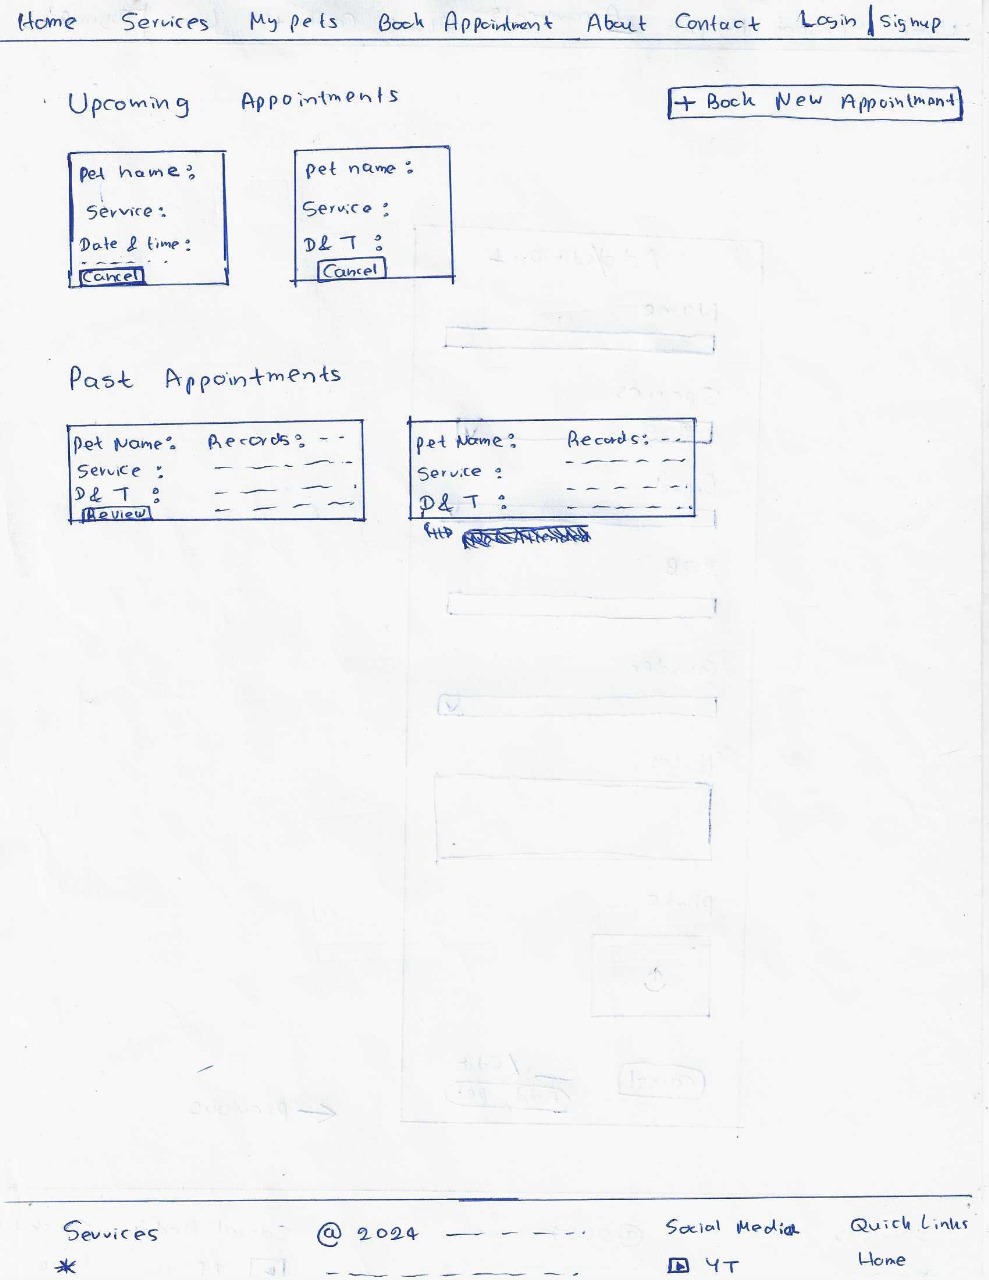 Home Services My pets Book Appointment About Contact Login | Signup
Upcoming Appointments
+ Book New Appointment
Pet name:
Service:
Date & time:
Cancel
Pet name:
Service:
D& T :
Cancel
Past Appointments
Pet Name: Records: - -
Service :
D& T :
Review
Pet Name: Records: - -
Service :
D& T :
Services
*
@ 2024
Social Media
YT
Quick Links
Home